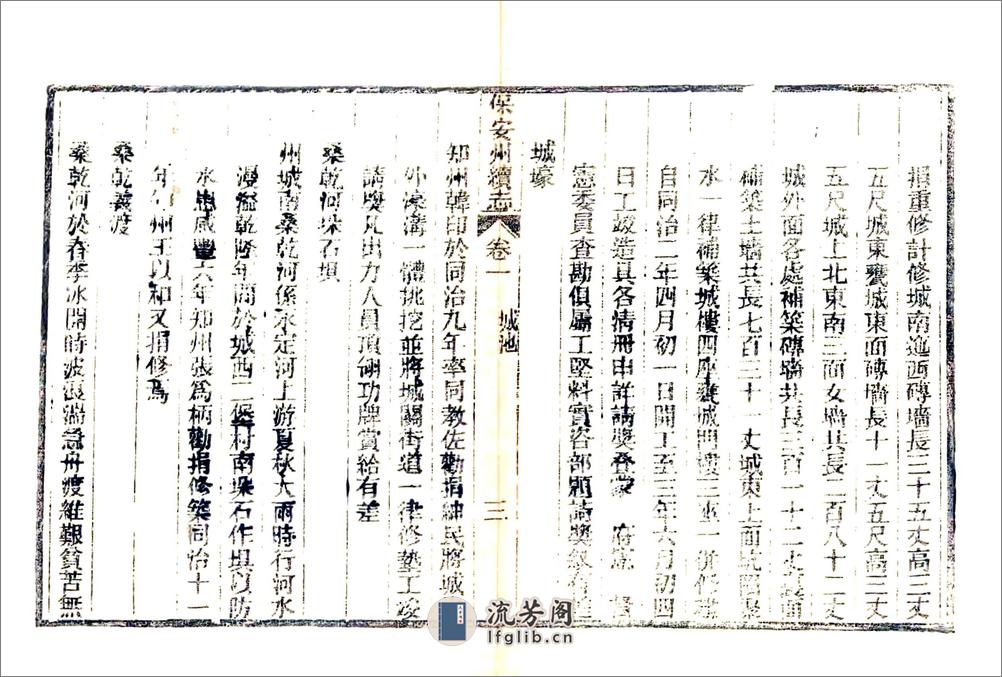 捐重修計修城南邉西磚墻長三十五丈高三丈
五尺城東甕城東面磚墻長十一丈五尺高三丈
五尺城上北東南三面女墻共長二百八十二丈
城外面各處補築磚墻共長三百一十二丈裏面
補築土墻共長七百三十一丈城頂上面坑
水一律補築城樓四座甕城門樓三座一併修
自同治二年四月初一日開工至三年六月初四
日工竣造具各清冊申詳請獎叠蒙 府憲
憲委員查勘俱屬工堅料實咨部題請獎叙有
城壕
知州韓印於同治九年率同教佐勸捐紳民將城
外濠溝一體挑挖並將城關街道一律修墊工竣
請獎凡出力人員頂翎功牌賞給有差
桑乾河垜石埧
州城南桑乾河係永定河上游夏秋大雨時行河水
漫溢乾隆年間於城西二堡村南垜石作埧以防
水患咸豐六年知州張爲柄勸捐修築同治十一
年知州王以和又捐修焉
桑乾義渡
桑乾河於春季冰開時波浪湍急舟渡維艱貧苦無
保安州續志 卷一 城池 三
流芳阁
lfglib.cn